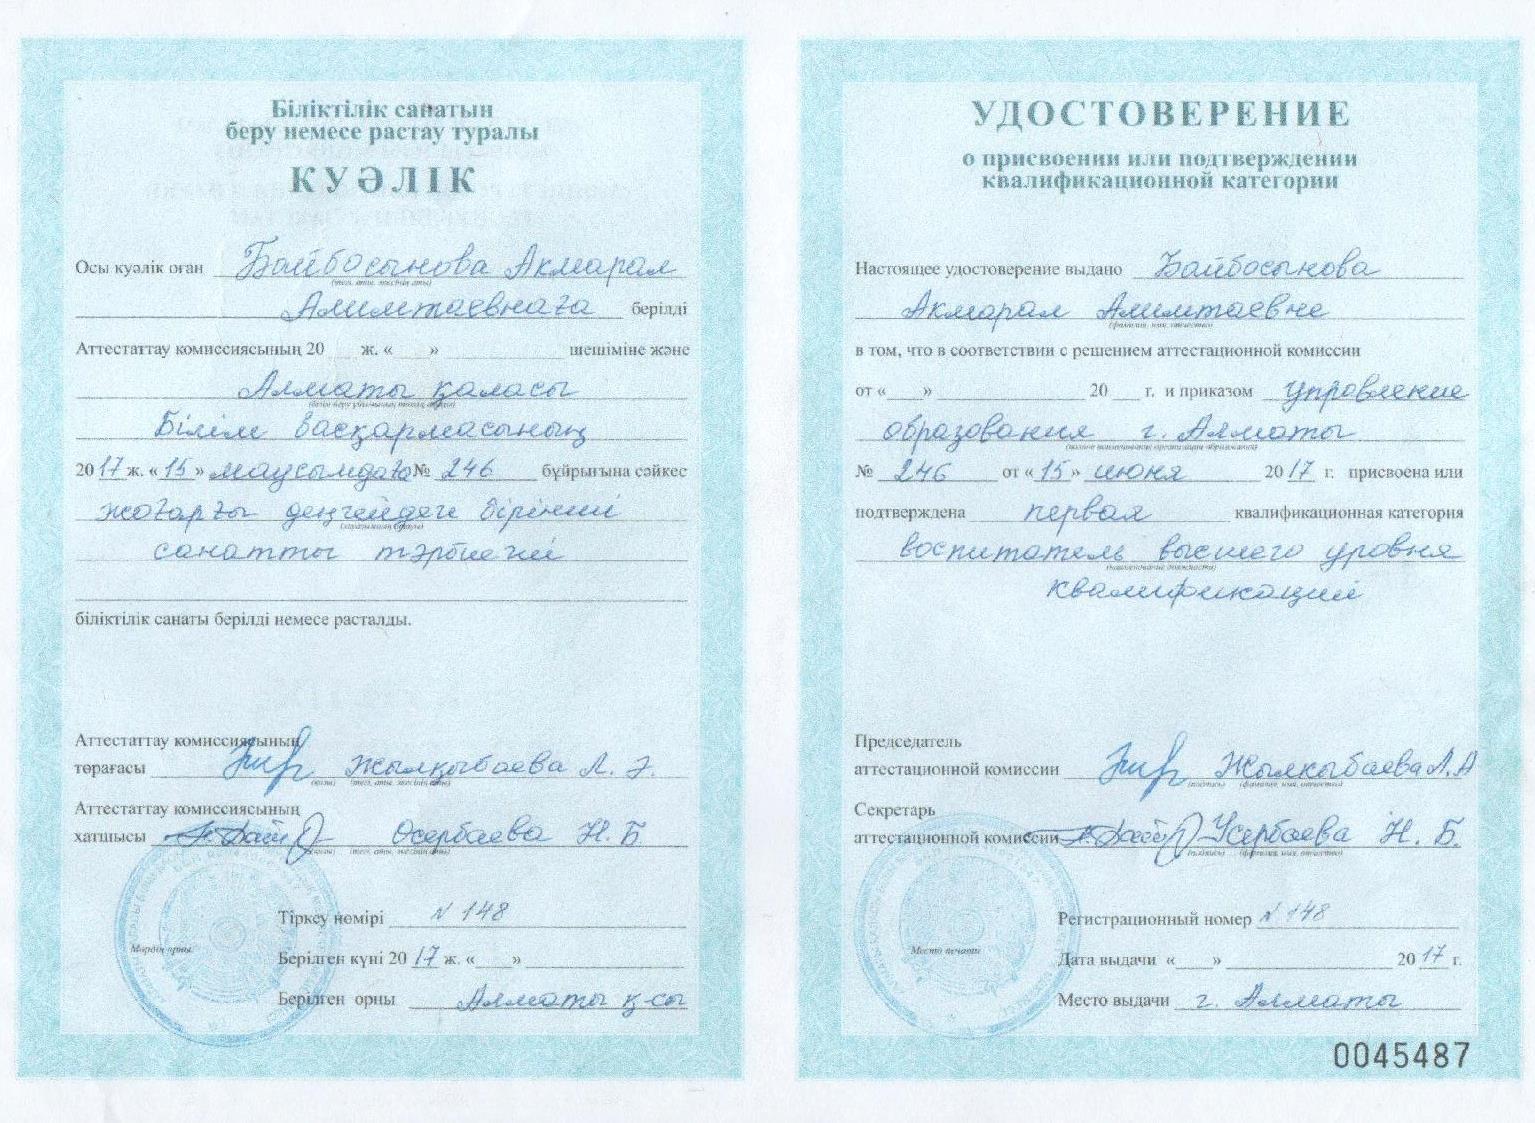 Біліктілік санатын
беру немесе растау туралы
КУӘЛІК
Осы куәлік оған Байбосынова Акмарал
(тегі, аты, әкесінің аты)
Алимтаевнаға берілді
Аттестаттау комиссиясының 20 ж. « » шешіміне және
Алматы қаласы
Білім басқармасының
2017 ж. «15» маусымдағы № 246 бұйрығына сәйкес
жоғарғы деңгейдегі бірінші
санатты тәрбиеші
біліктілік санаты берілді немесе расталды.
Аттестаттау комиссиясының
төрағасы Жылқыбаева Л. Ә.
(қолы) (тегі, аты, әкесінің аты)
Аттестаттау комиссиясының
хатшысы Өсербаева Н. Б
(қолы) (тегі, аты, әкесінің аты)
Мөрдің орны
Тіркеу нөмірі N 148
Берілген күні 2017 ж. « »
Берілген орны Алматы қ-сы
УДОСТОВЕРЕНИЕ
о присвоении или подтверждении
квалификационной категории
Настоящее удостоверение выдано Байбосынова
Акмарал Алимтаевне
(фамилия, имя, отчество)
в том, что в соответствии с решением аттестационной комиссии
от « » 20 г. и приказом управление
образования г. Алматы
(полное наименование организации образования)
№ 246 от «15» июня 2017 г. присвоена или
подтверждена первая квалификационная категория
воспитатель высшего уровня
(наименование должности)
квалификаций
Председатель
аттестационной комиссии Жылкыбаева Л. А
(подпись) (фамилия, имя, отчество)
Секретарь
аттестационной комиссии Усербаева Н. Б.
(подпись) (фамилия, имя, отчество)
Место печати
Регистрационный номер N 148
Дата выдачи « » 2017 г.
Место выдачи г. Алматы
0045487